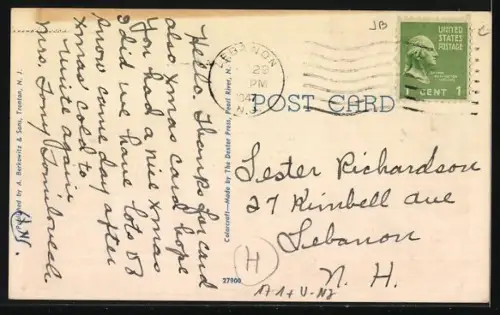 Hello Thanks for card
also Xmas card hope
You had a nice Xmas
I did we have lots of
snow come day after
Xmas cold to
write again
Mrs. Tony
Published by A. Berkowitz & Sons, Trenton, N. J.
Colorcraft—Made by The Dexter Press, Pearl River, N.
27900
LEBANON
29
PM
1947
POST CARD
UNITED
STATES
POSTAGE
CENT 1
JB
Lester Richardson
27 Kimbell ave
Lebanon
N. H.
H